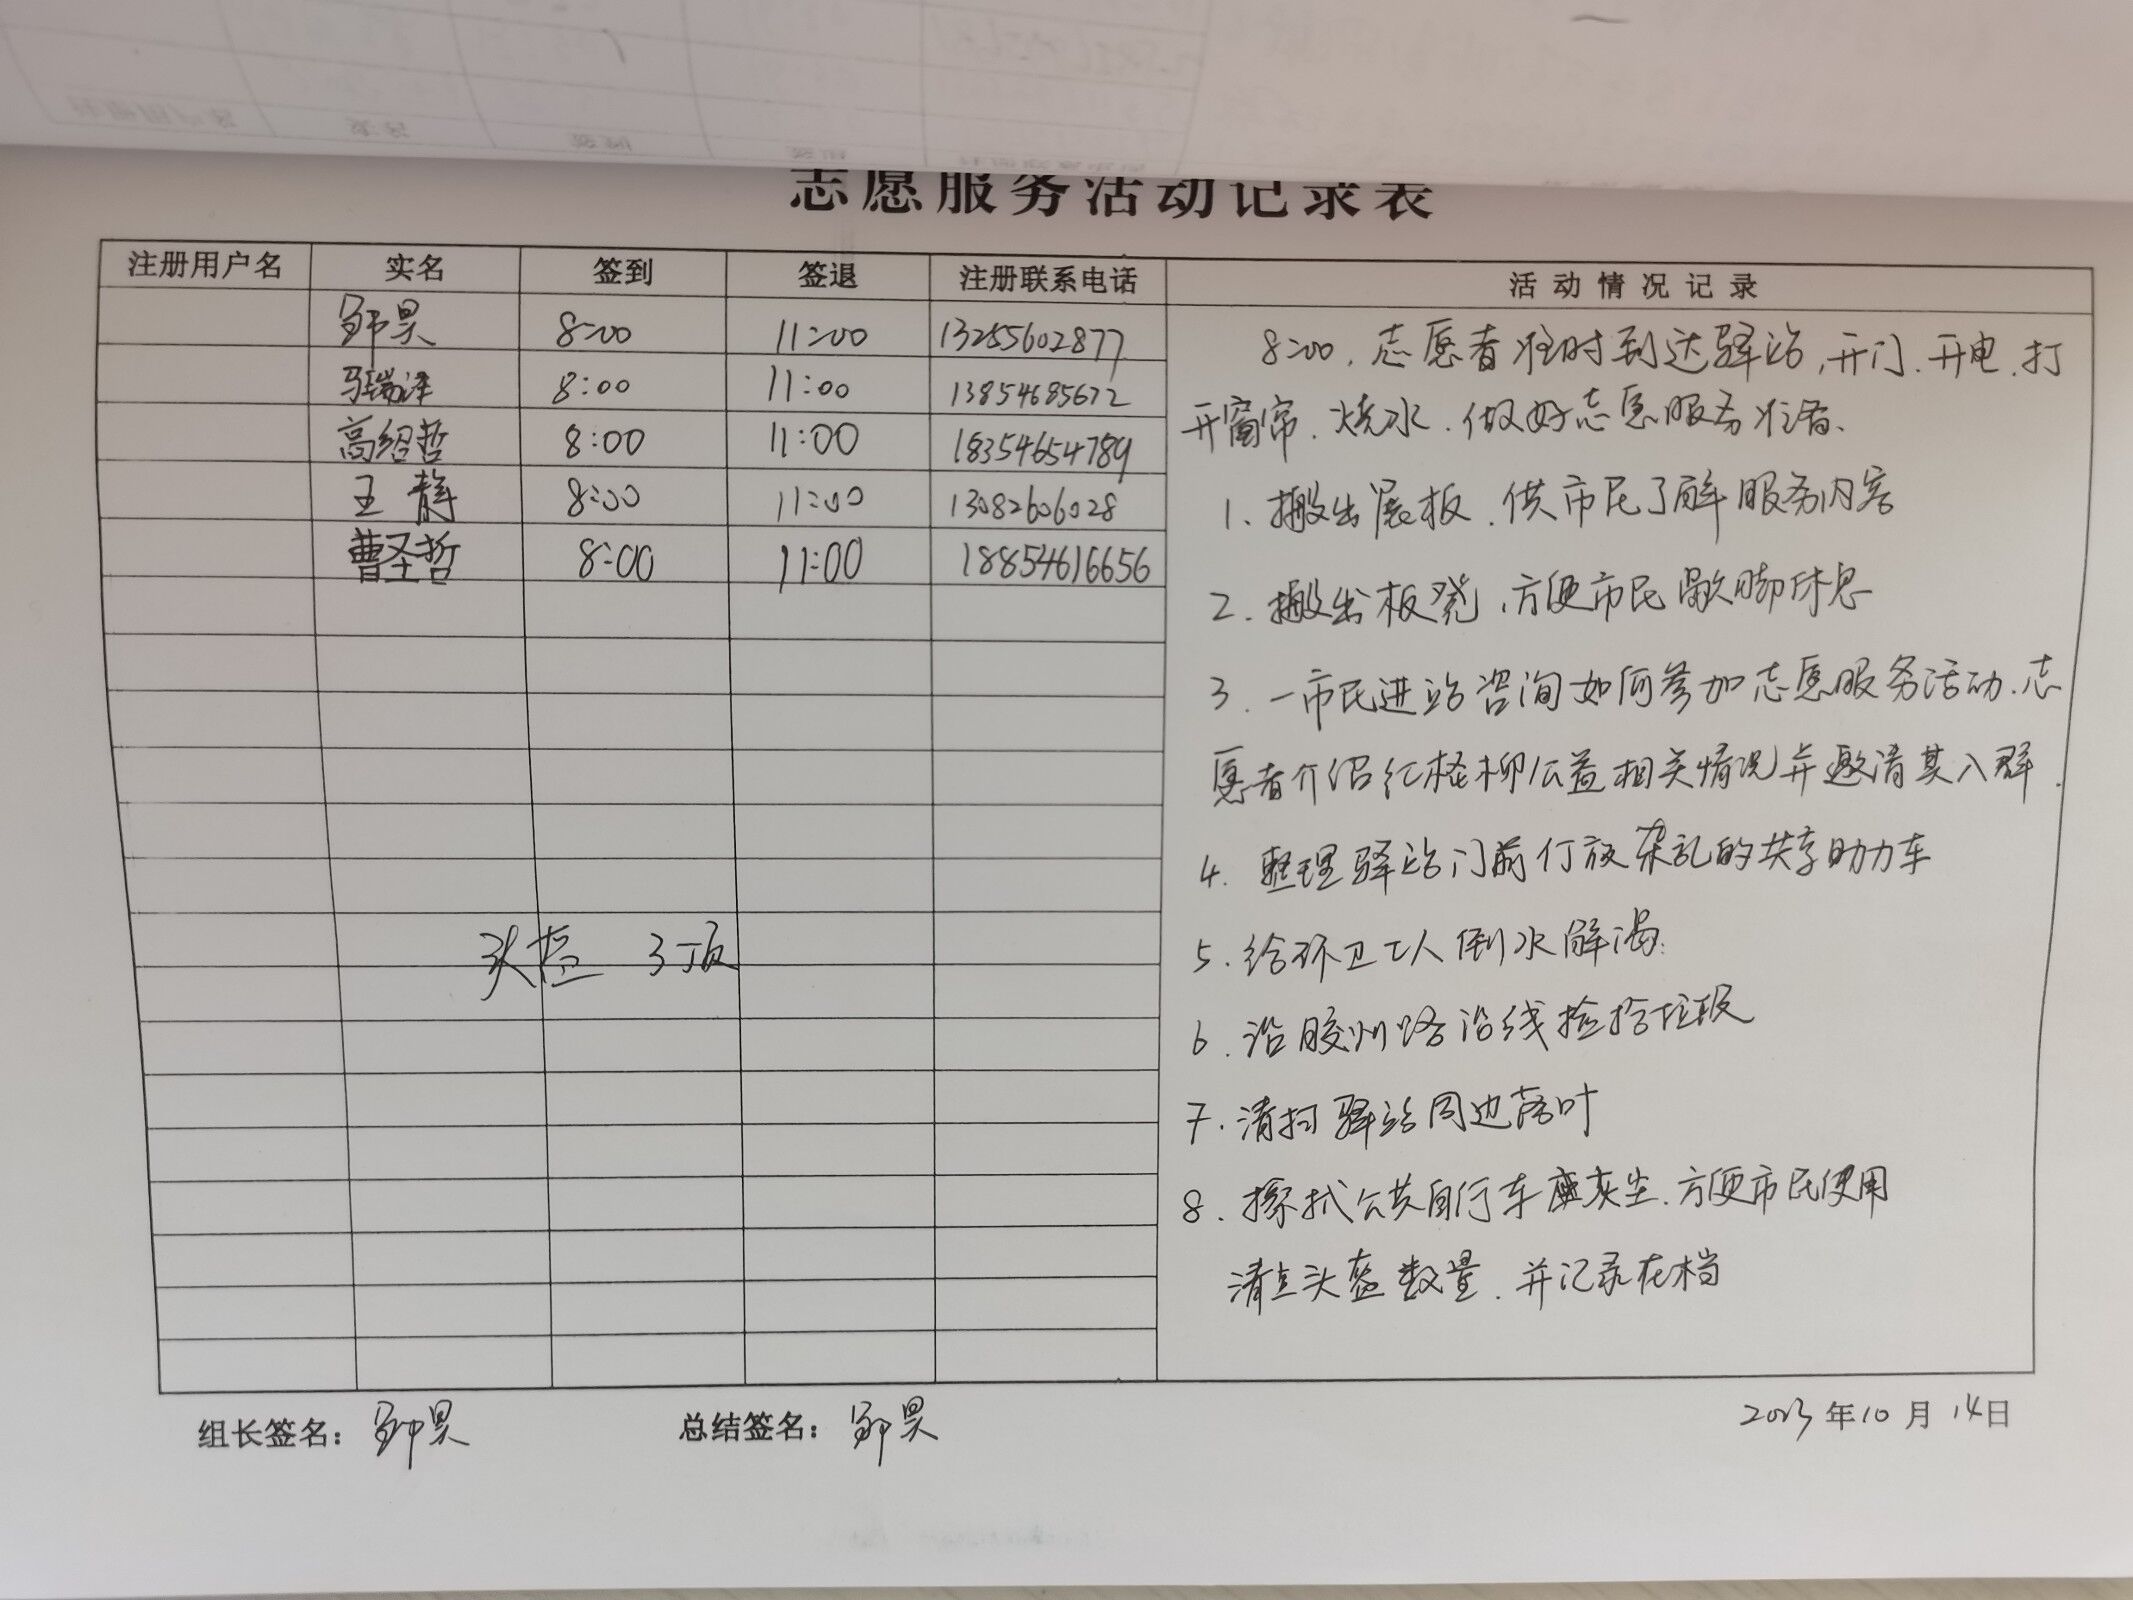 志愿服务活动记录表
注册用户名 实名 签到 签退 注册联系电话 活动情况记录
邹昊 8:00 11:00 13255602877
马瑞泽 8:00 11:00 13854685672
高绍哲 8:00 11:00 18354654789
王静 8:00 11:00 13082606028
曹圣哲 8:00 11:00 18854616656
头盔 3顶
8:00,志愿者准时到达驿站,开门、开电、打
开窗帘、烧水、做好志愿服务准备、
1、搬出展板、供市民了解服务内容
2、搬出板凳、方便市民歇脚休息
3、一市民进站咨询如何参加志愿服务活动、志
愿者介绍红柽柳公益相关情况并邀请其入群.
4、整理驿站门前行放杂乱的共享助力车
5、给环卫工人倒水解渴
6、沿胶州路沿线捡拾垃圾
7、清扫驿站周边落叶
8、擦拭公共自行车座灰尘、方便市民使用
清点头盔数量、并记录在档
组长签名: 邹昊 总结签名: 邹昊 2023年10月14日